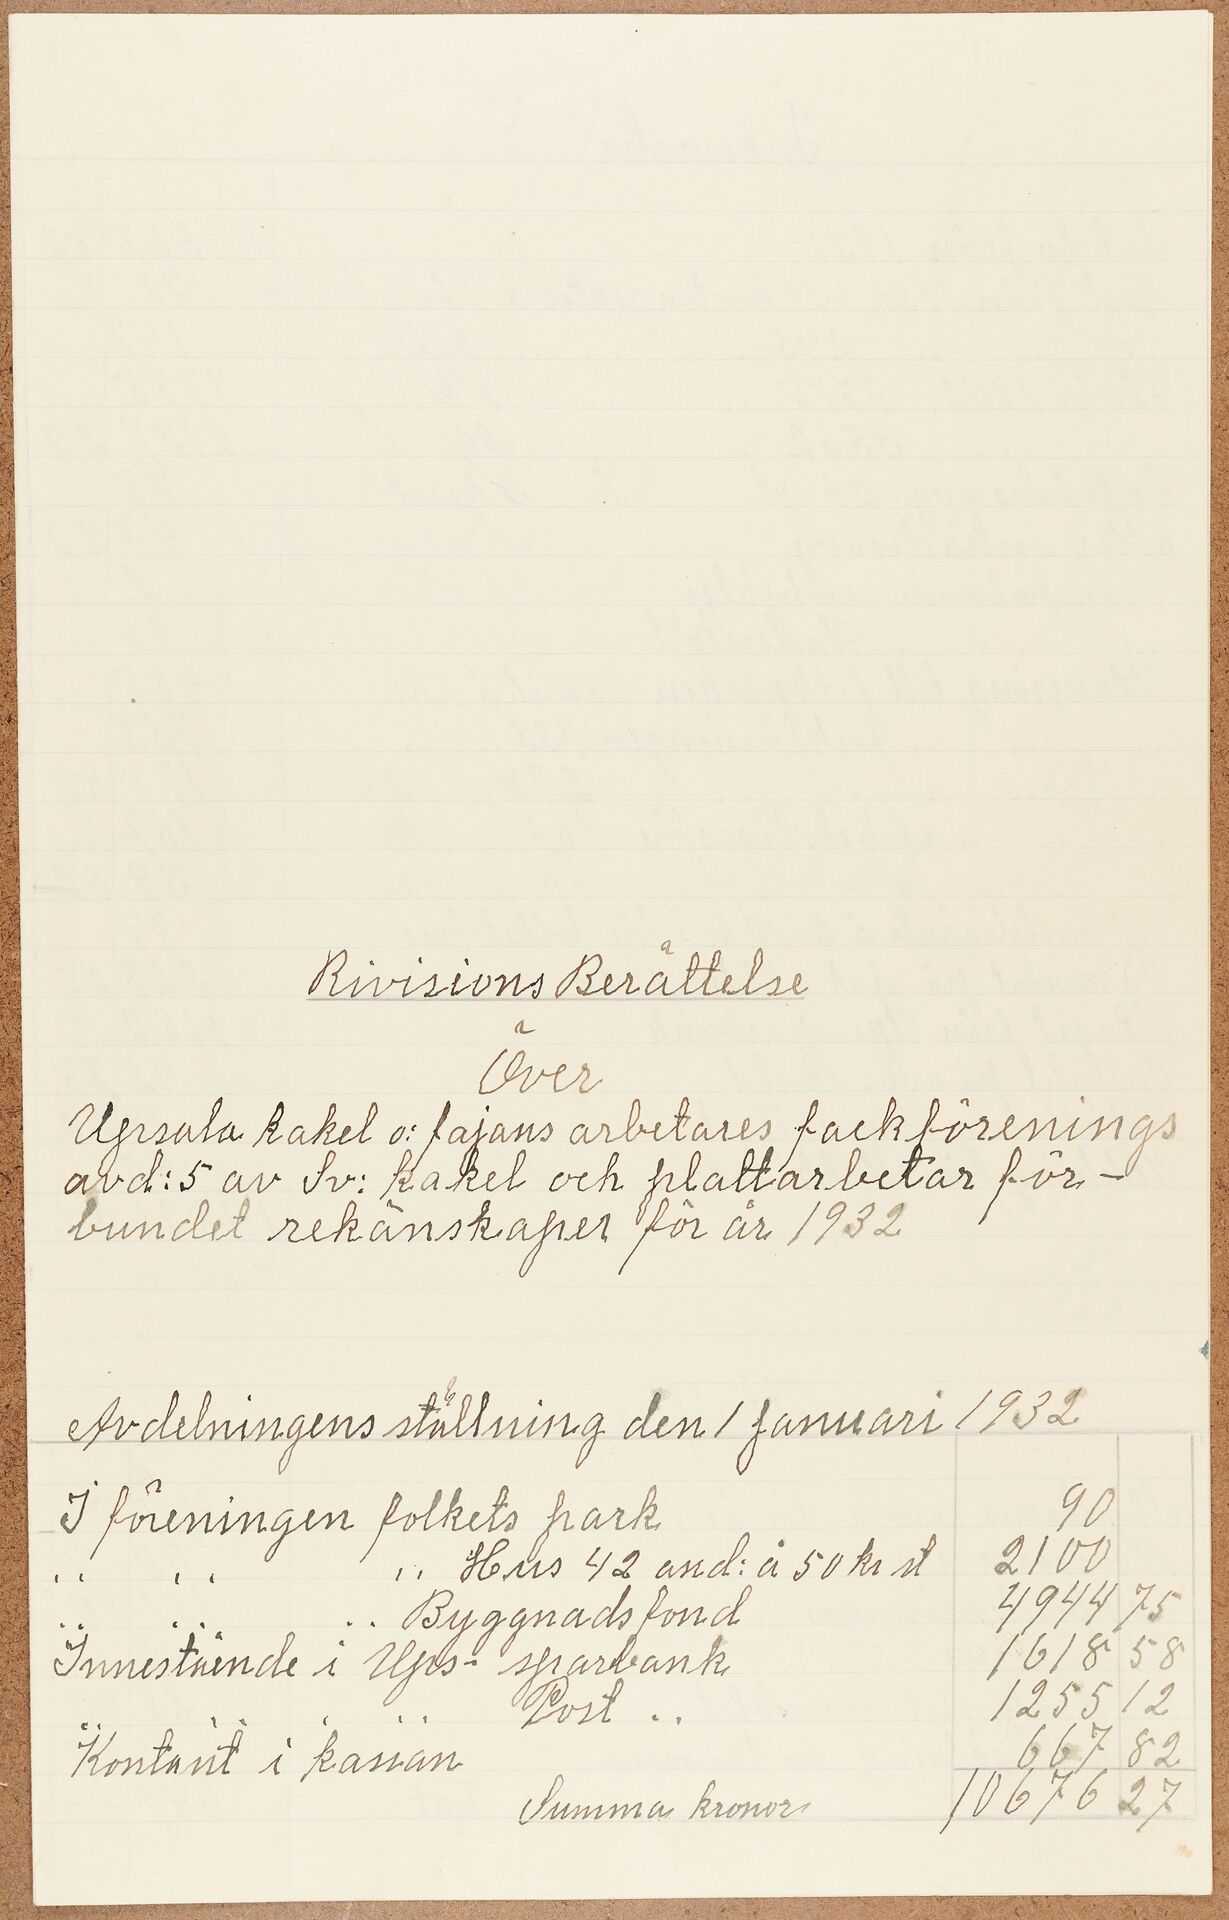 Rivisions Berättelse
Över
Upsala kakel o: fajans arbetares fackförenings
avd: 5 av Sv: kakel och plattarbetar för-
bundet rekänskaper för år 1932
Avdelningens ställning den 1 Januari 1932
I föreningen folkets park 90
,, ,, ,, Hus 42 and: à 50 kr st 2100
,, ,, ,, Byggnadsfond 4944 75
Innestående i Ups- sparbank 1618 58
,, ,, ,, Post ,, 1255 12
Kontant i kassan 667 82
Summa kronor 10676 27